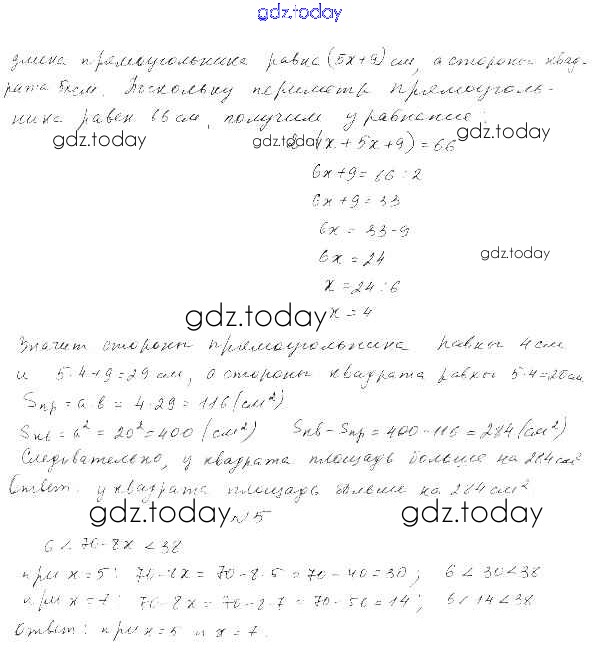 gdz.today
длина прямоугольника равна (5x+9) см, а стороны квад-
рата 5x см. Поскольку периметр прямоуголь-
ника равен 66 см, получим уравнение:
gdz.today gdz.today gdz.today
2·(x+5x+9)=66
6x+9=66:2
6x+9=33
6x=33-9
6x=24 gdz.today
x=24:6
gdz.today x=4
Значит стороны прямоугольника равны 4 см
и 5·4+9=29 см, а стороны квадрата равны 5·4=20 см.
Sпр=a·b=4·29=116(см²)
Sкв=a²=20²=400(см²) Sкв-Sпр=400-116=284(см²)
Следовательно, у квадрата площадь больше на 284 см²
Ответ: у квадрата площадь больше на 284 см²
gdz.today №5 gdz.today
6<70-8x<38
при x=5: 70-8x=70-8·5=70-40=30; 6<30<38
при x=7: 70-8x=70-8·7=70-56=14; 6<14<38
Ответ: при x=5 и x=7.